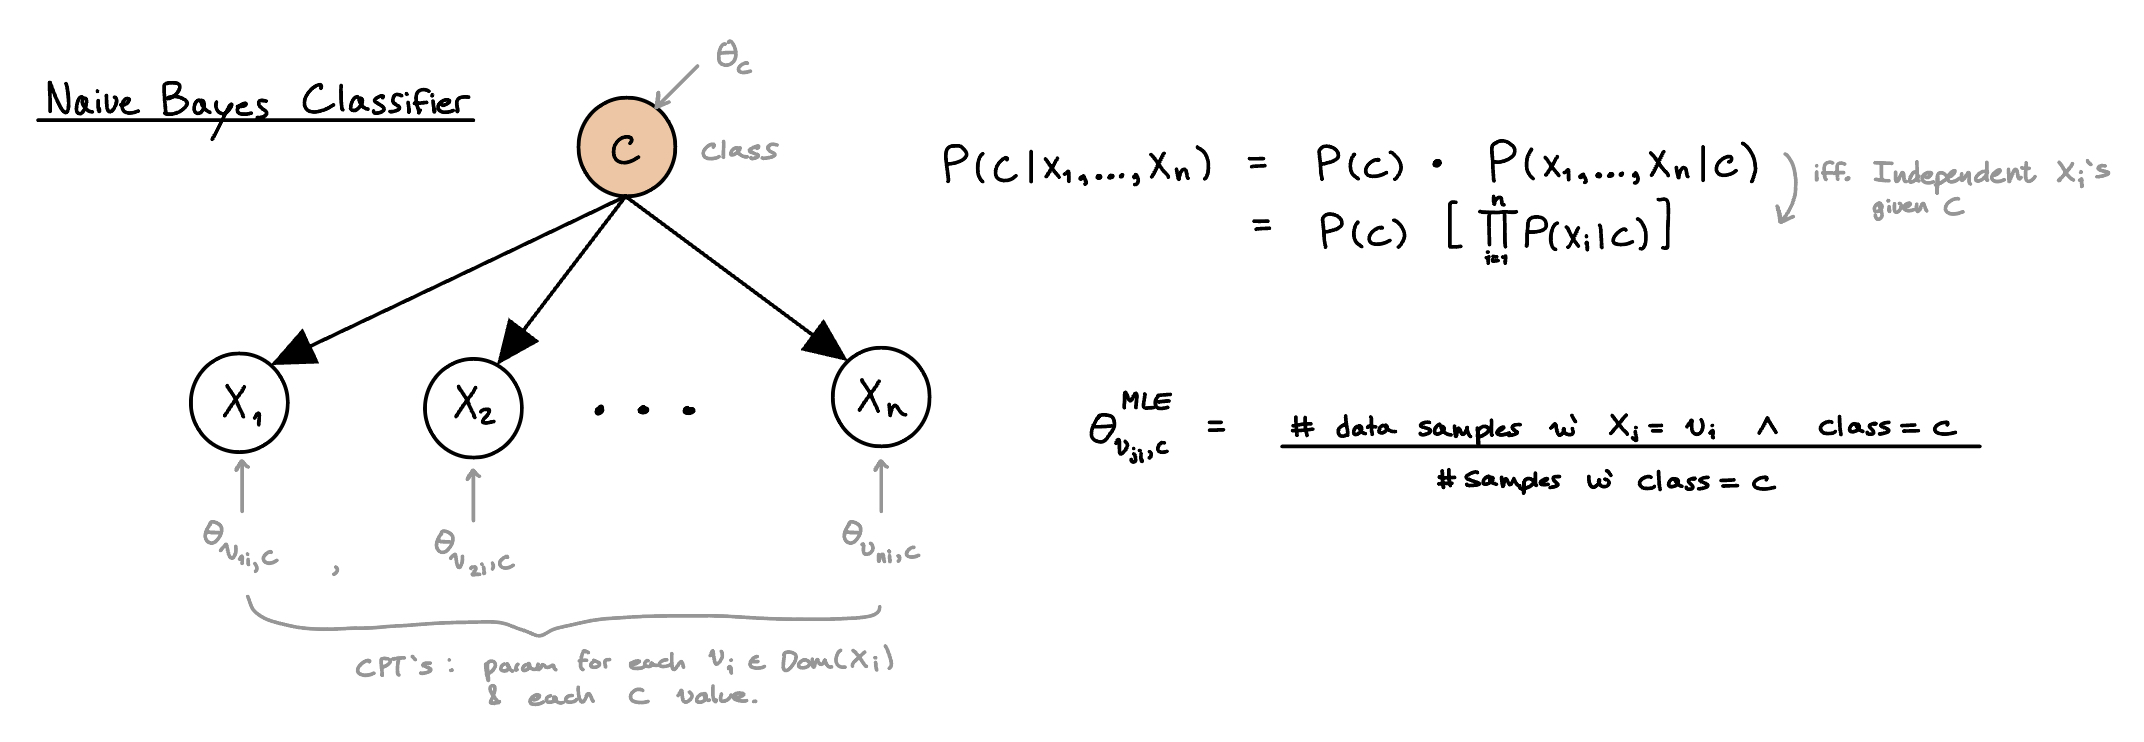 Naive Bayes Classifier
θ_c
C
class
X_1
X_2
. . .
X_n
θ_{v_{1i},c} ,
θ_{v_{2i},c}
θ_{v_{ni},c}
CPT's: param for each v_i ∈ Dom(X_i)
& each C value.
P(C|X_1,...,X_n) = P(C) · P(X_1,...,X_n|C)
iff. Independent X_i's
given C
= P(C) [ ∏_{i=1}^{n} P(X_i|C) ]
θ^{MLE}_{v_{ji},c} =
# data samples w' X_j = v_i ∧ class = c
# samples w' class = c